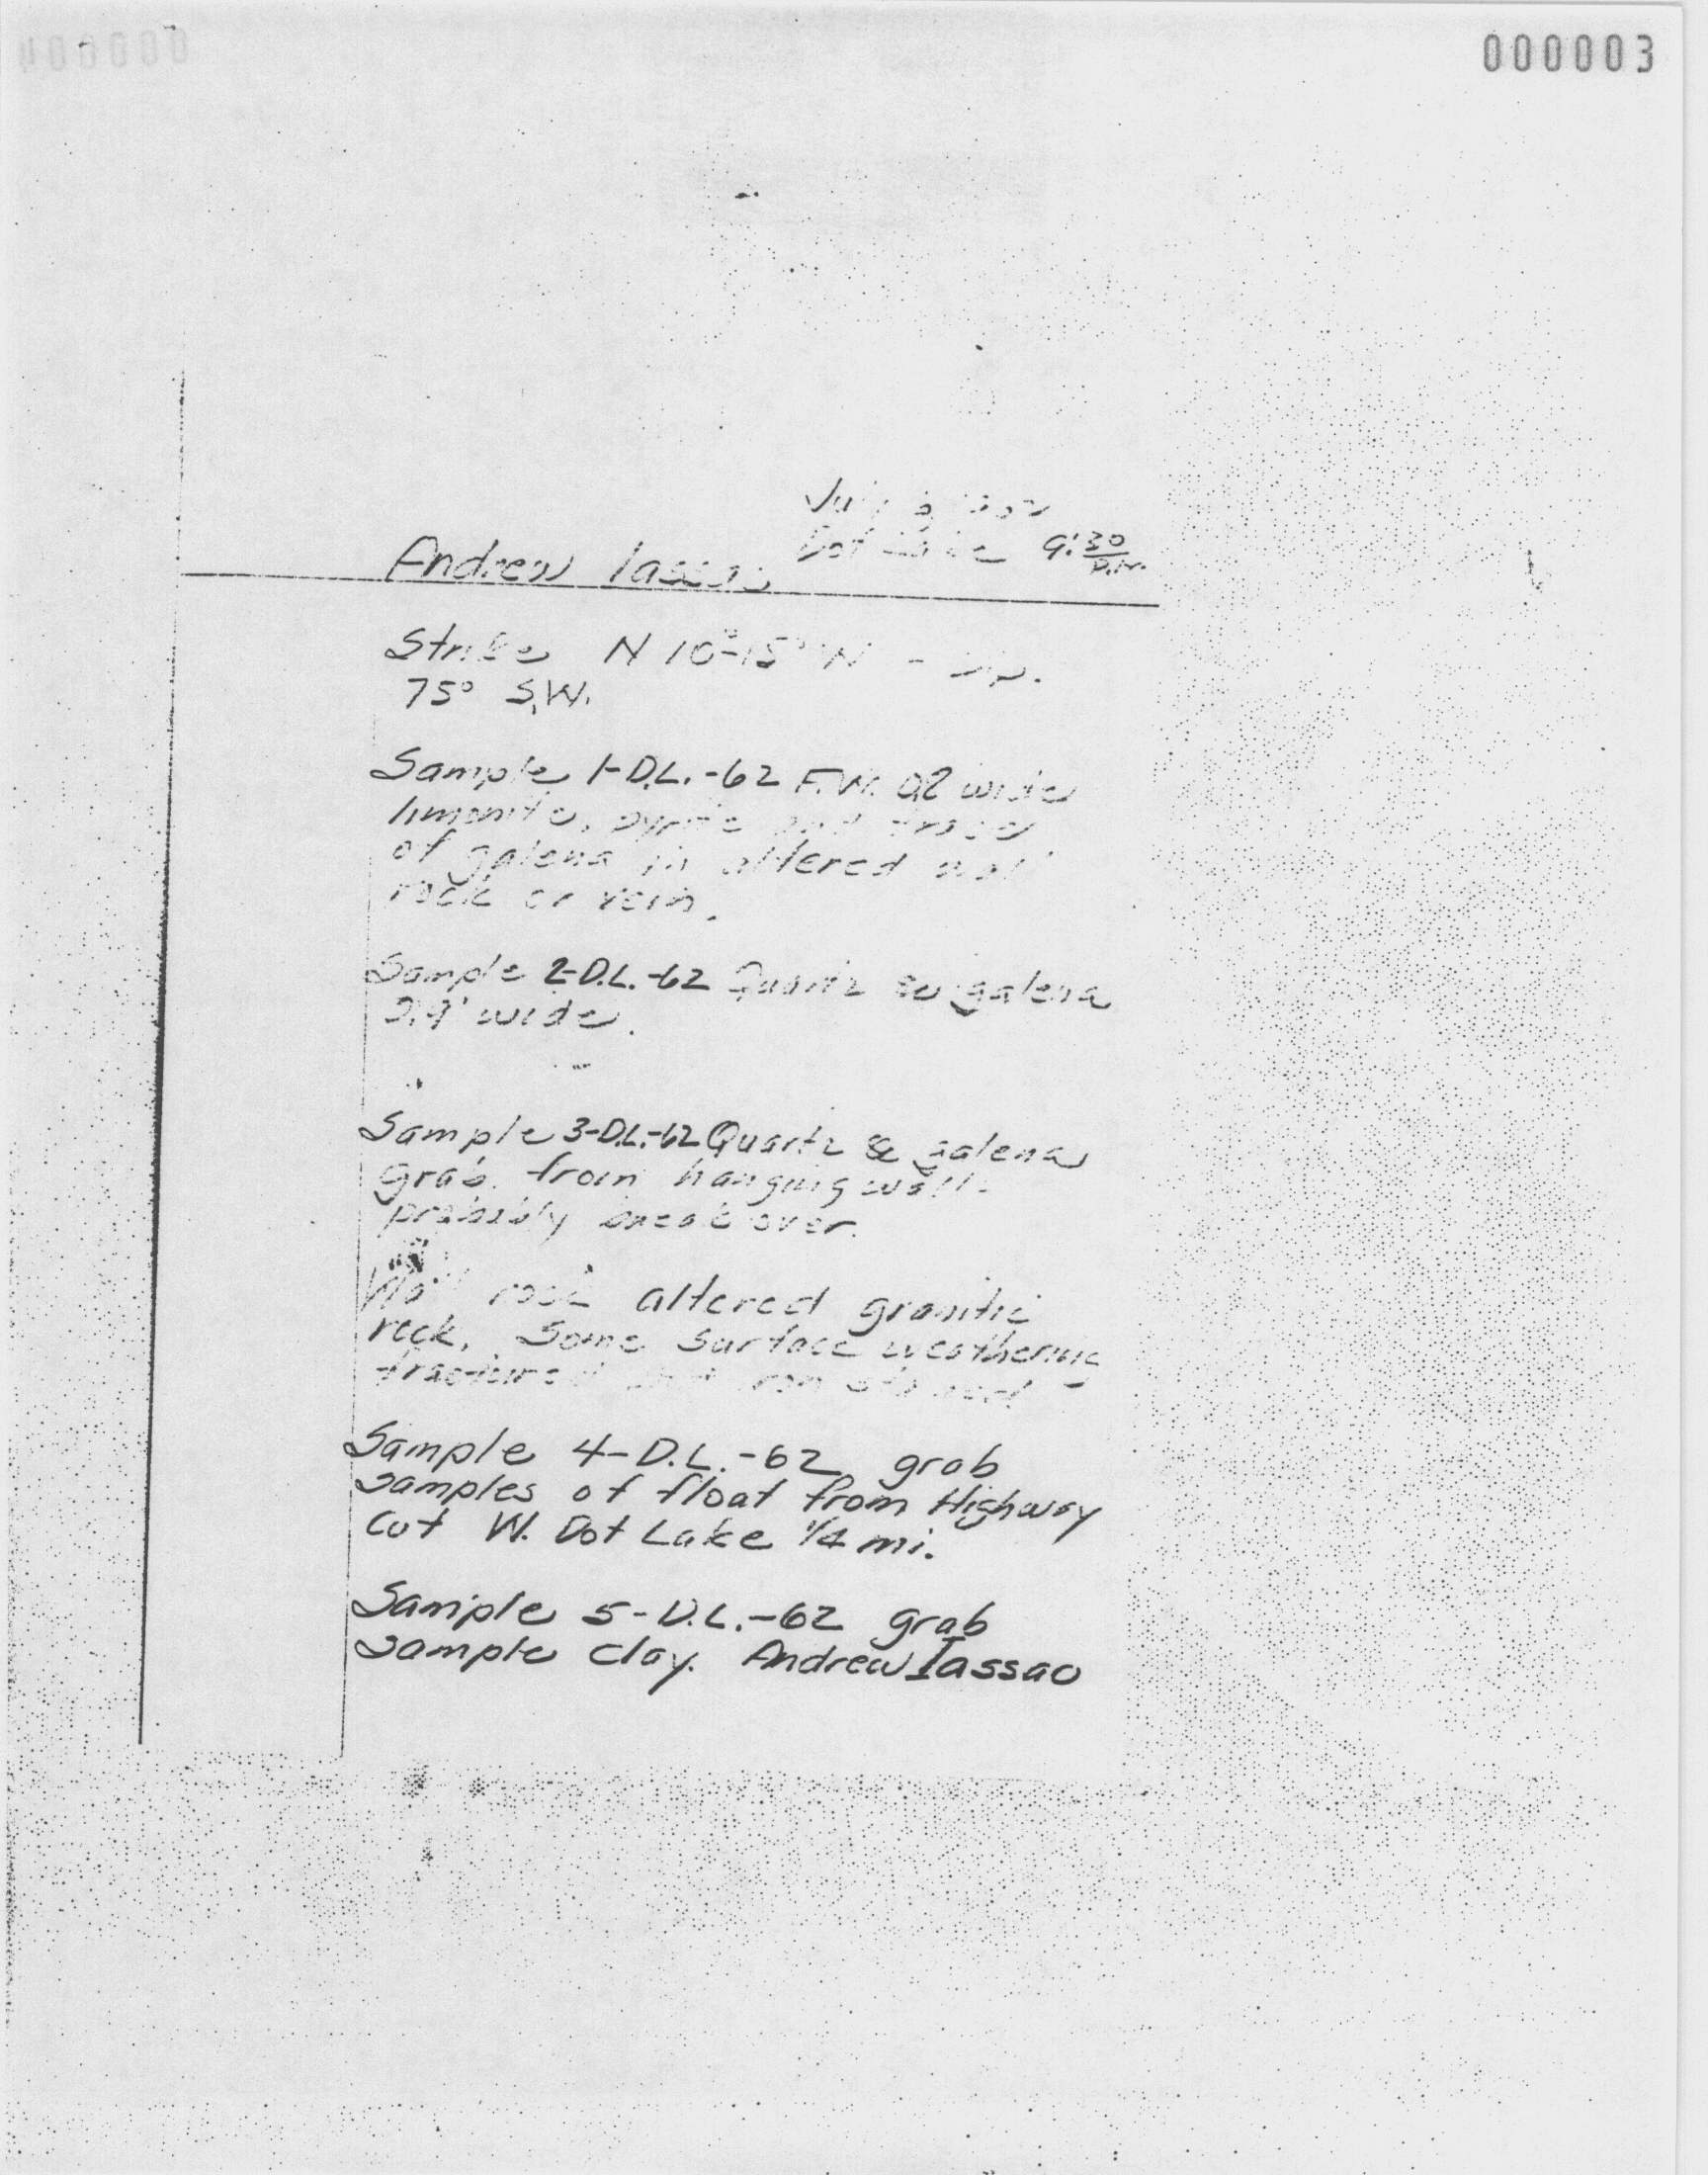 000003
July
Dot Lake 9:30
P.M.
Andrew
Strike N 10°-15° W -
75° S.W.
Sample 1-D.L.-62 F.W. 0.2 wide
limonite, pyrite and
of galena in altered wall
rock or vein.
Sample 2-D.L.-62 Quartz & galena
wide.
Sample 3-D.L.-62 Quartz & galena
grab from hanging wall.
probably break over.
Wall rock altered granitic
rock. Some surface weathering
fractured and iron stained -
Sample 4-D.L.-62 grab
samples of float from Highway
cut W. Dot Lake 1/4 mi.
Sample 5-D.L.-62 grab
sample clay. Andrew Iassao